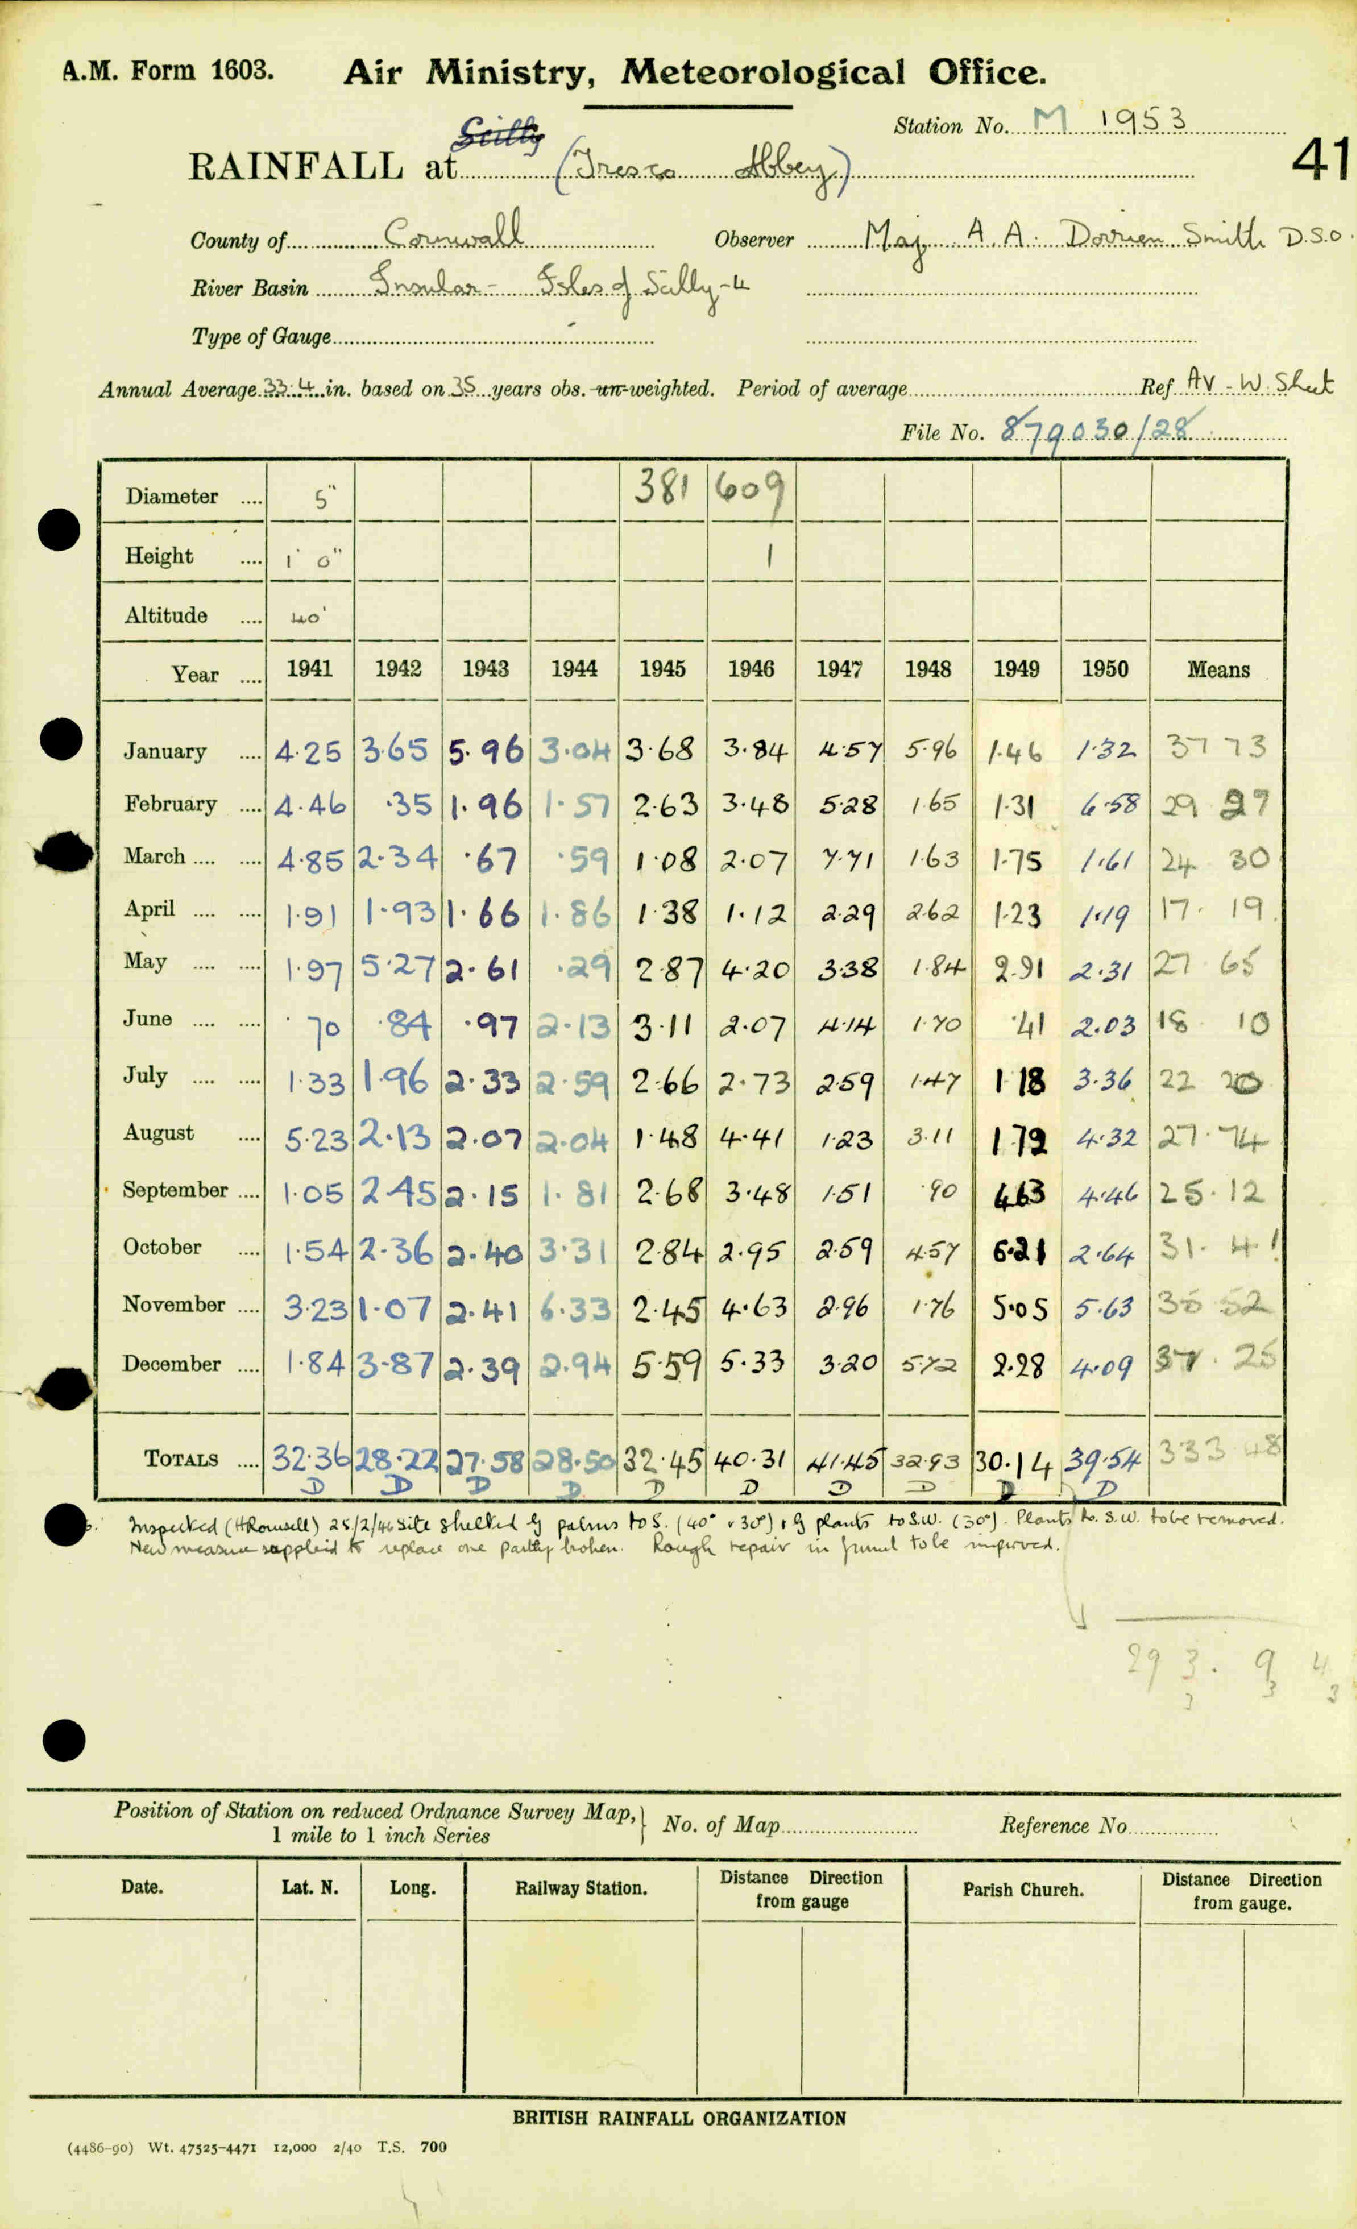 A.M. Form 1603. Air Ministry, Meteorological Office.
Station No. M 1953
41
Scilly
RAINFALL at (Tresco Abbey)
County of Cornwall Observer Maj A. A. Dorrien Smith D.S.O.
River Basin Insular - Isles of Scilly - 4
Type of Gauge
Annual Average 33.4 in. based on 35 years obs. un-weighted. Period of average Ref Av - W. Sheet
File No. 879030/28
Diameter .... 5" 381 609
Height .... 1' 0" 1
Altitude .... 40'
Year .... 1941 1942 1943 1944 1945 1946 1947 1948 1949 1950 Means
January .... 4.25 3.65 5.96 3.04 3.68 3.84 4.57 5.96 1.46 1.32 37 73
February .... 4.46 .35 1.96 1.57 2.63 3.48 5.28 1.65 1.31 6.58 29 27
March .... .... 4.85 2.34 .67 .59 1.08 2.07 7.71 1.63 1.75 1.61 24 30
April .... .... 1.91 1.93 1.66 1.86 1.38 1.12 2.29 2.62 1.23 1.19 17. 19
May .... .... 1.97 5.27 2.61 .29 2.87 4.20 3.38 1.84 2.91 2.31 27 65
June .... .... .70 .84 .97 2.13 3.11 2.07 4.14 1.70 .41 2.03 18 10
July .... .... 1.33 1.96 2.33 2.59 2.66 2.73 2.59 1.47 1.18 3.36 22 20
August .... 5.23 2.13 2.07 2.04 1.48 4.41 1.23 3.11 1.72 4.32 27.74
September .... 1.05 2.45 2.15 1.81 2.68 3.48 1.51 .90 4.63 4.46 25.12
October .... 1.54 2.36 2.40 3.31 2.84 2.95 2.59 4.57 6.21 2.64 31.41
November .... 3.23 1.07 2.41 6.33 2.45 4.63 2.96 1.76 5.05 5.63 35 52
December .... 1.84 3.87 2.39 2.94 5.59 5.33 3.20 5.72 2.28 4.09 37.25
TOTALS .... 32.36 28.22 27.58 28.50 32.45 40.31 41.45 32.93 30.14 39.54 333 48
D D D D D D D D D D
Inspected (H Rowsell) 25/2/46 Site shelted by palms to S. (40° & 30°) & by plants to S.W. (30°). Plants to S.W. to be removed.
New measure supplied to replace one partly broken. Rough repair in funnel to be improved.
29 3. 9 4
3 3 3
Position of Station on reduced Ordnance Survey Map, } No. of Map Reference No
1 mile to 1 inch Series
Date. Lat. N. Long. Railway Station. Distance Direction from gauge Parish Church. Distance Direction from gauge.
BRITISH RAINFALL ORGANIZATION
(4486-90) Wt. 47525-4471 12,000 2/40 T.S. 700